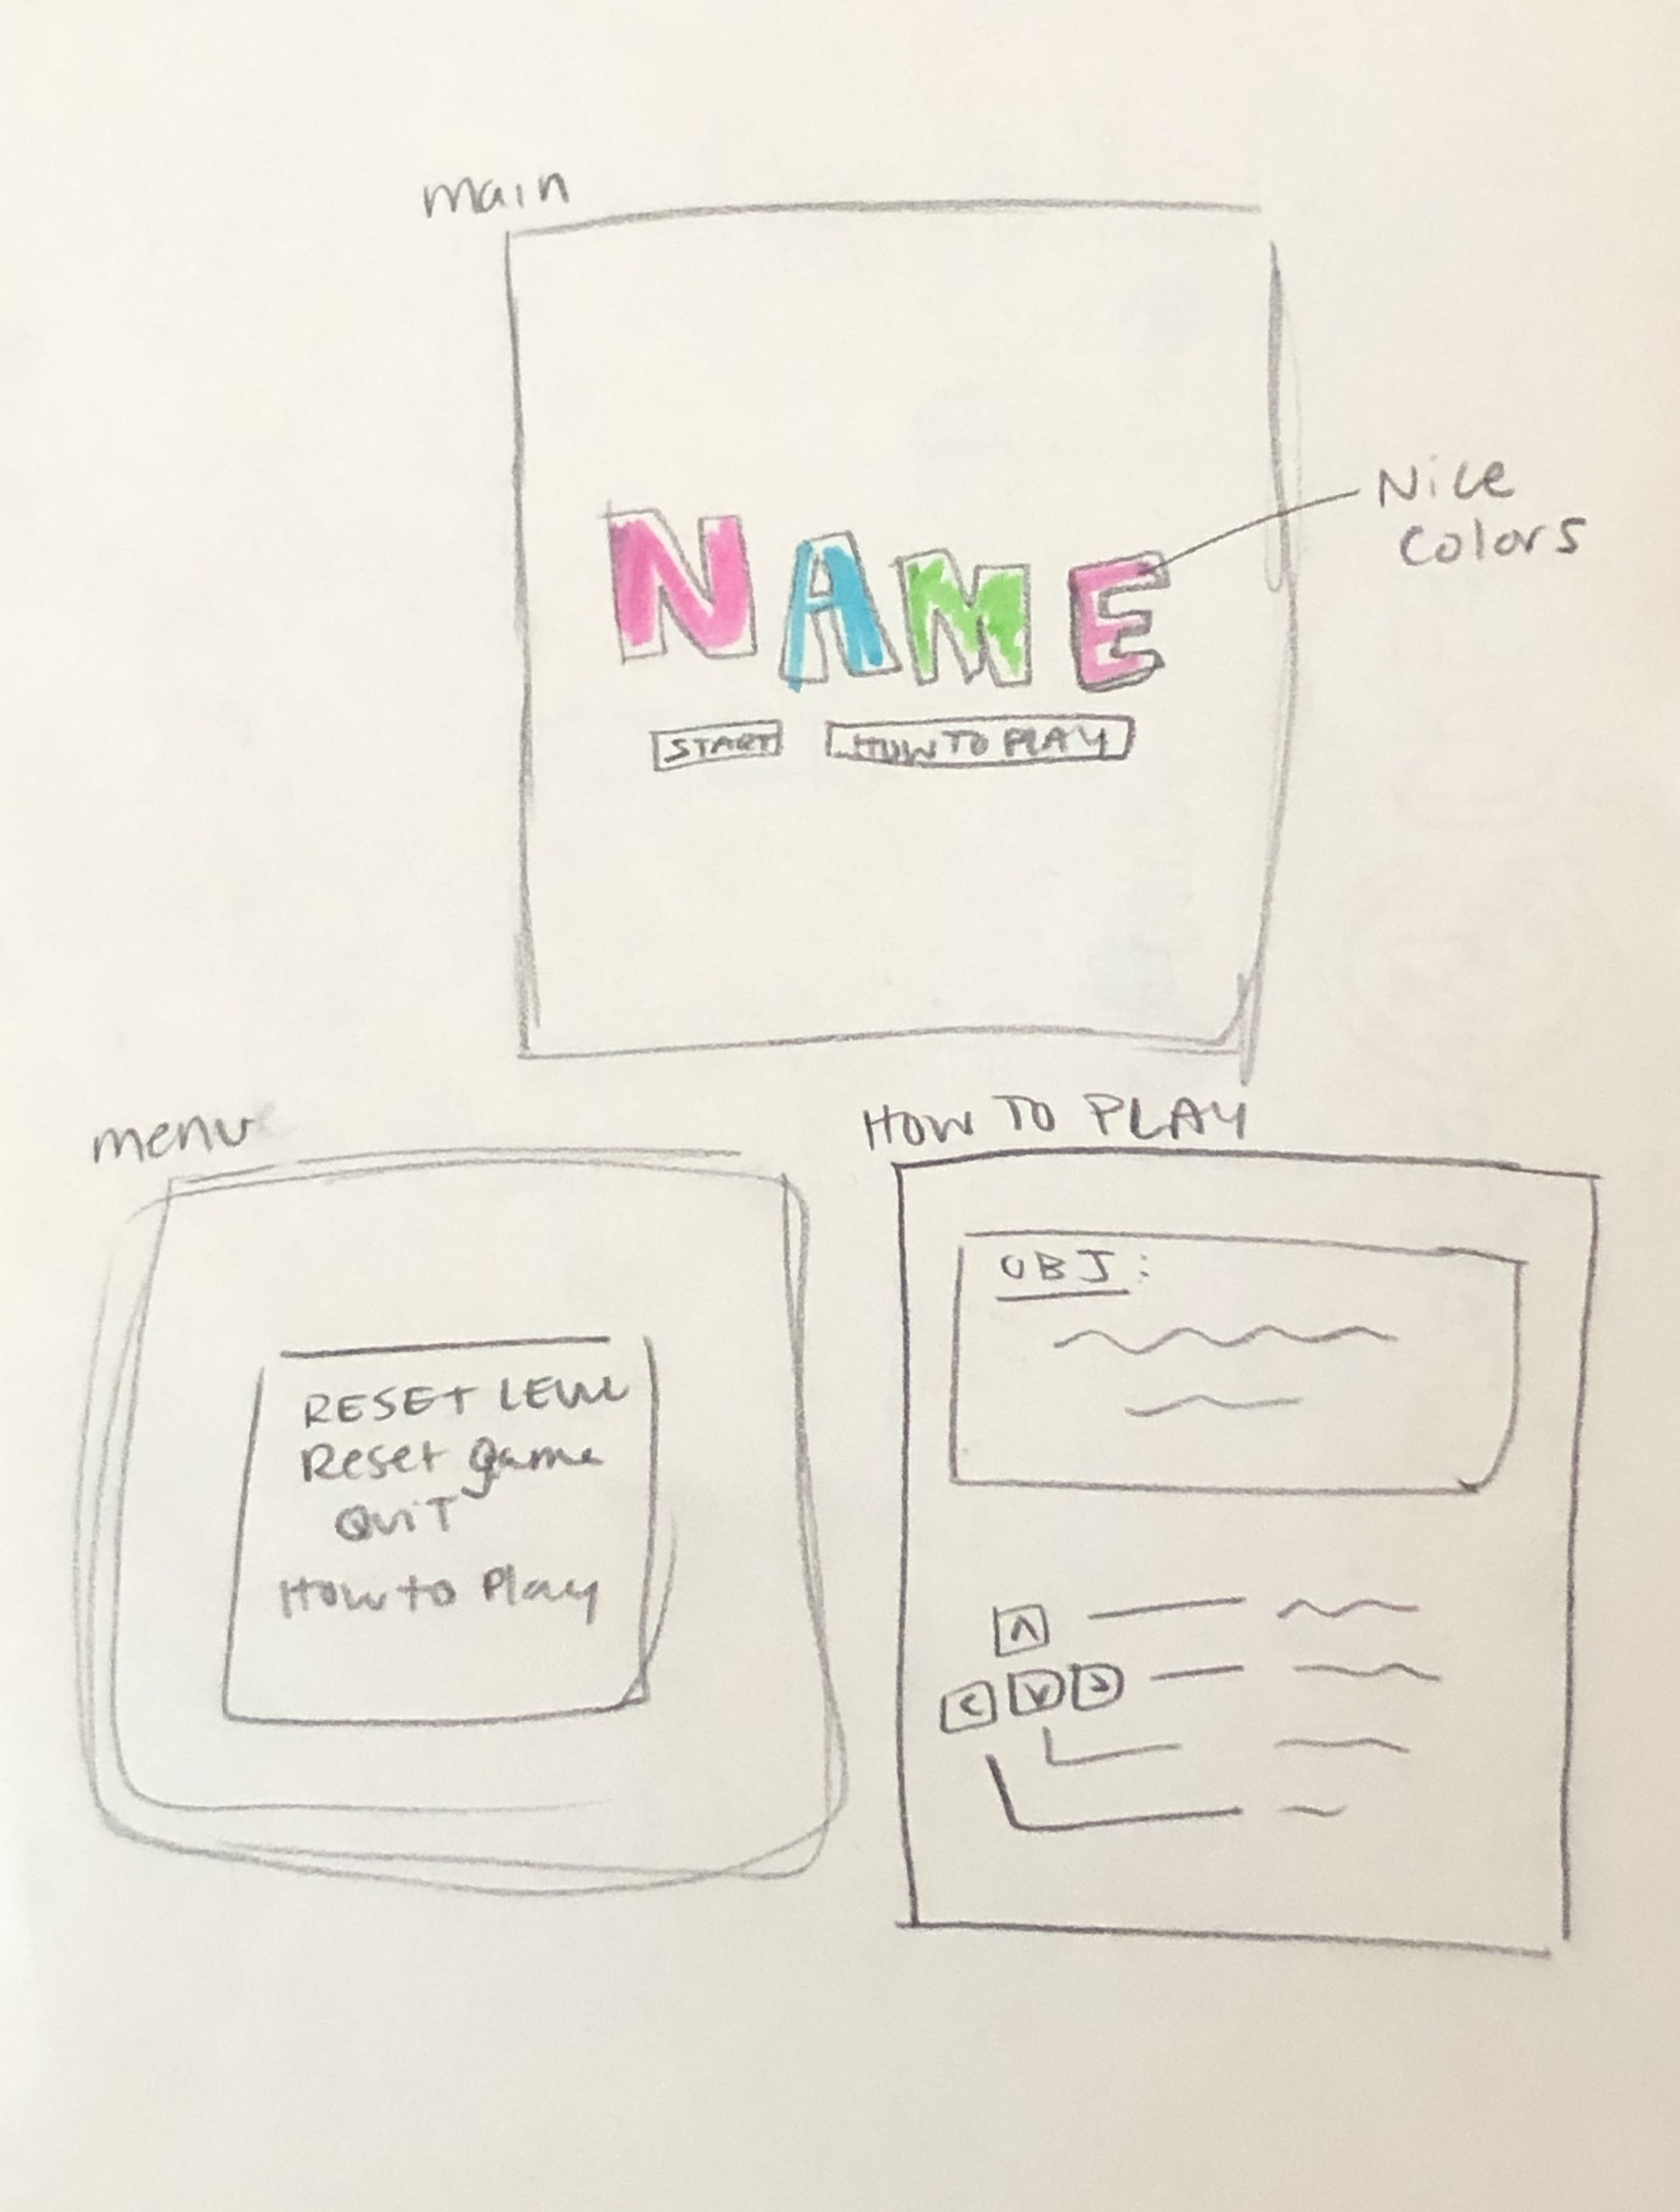 main
NAME
Nice
colors
START
HOW TO PLAY
menu
RESET LEVEL
Reset game
QuiT
How to Play
HOW TO PLAY
OBJ:
^
< v >